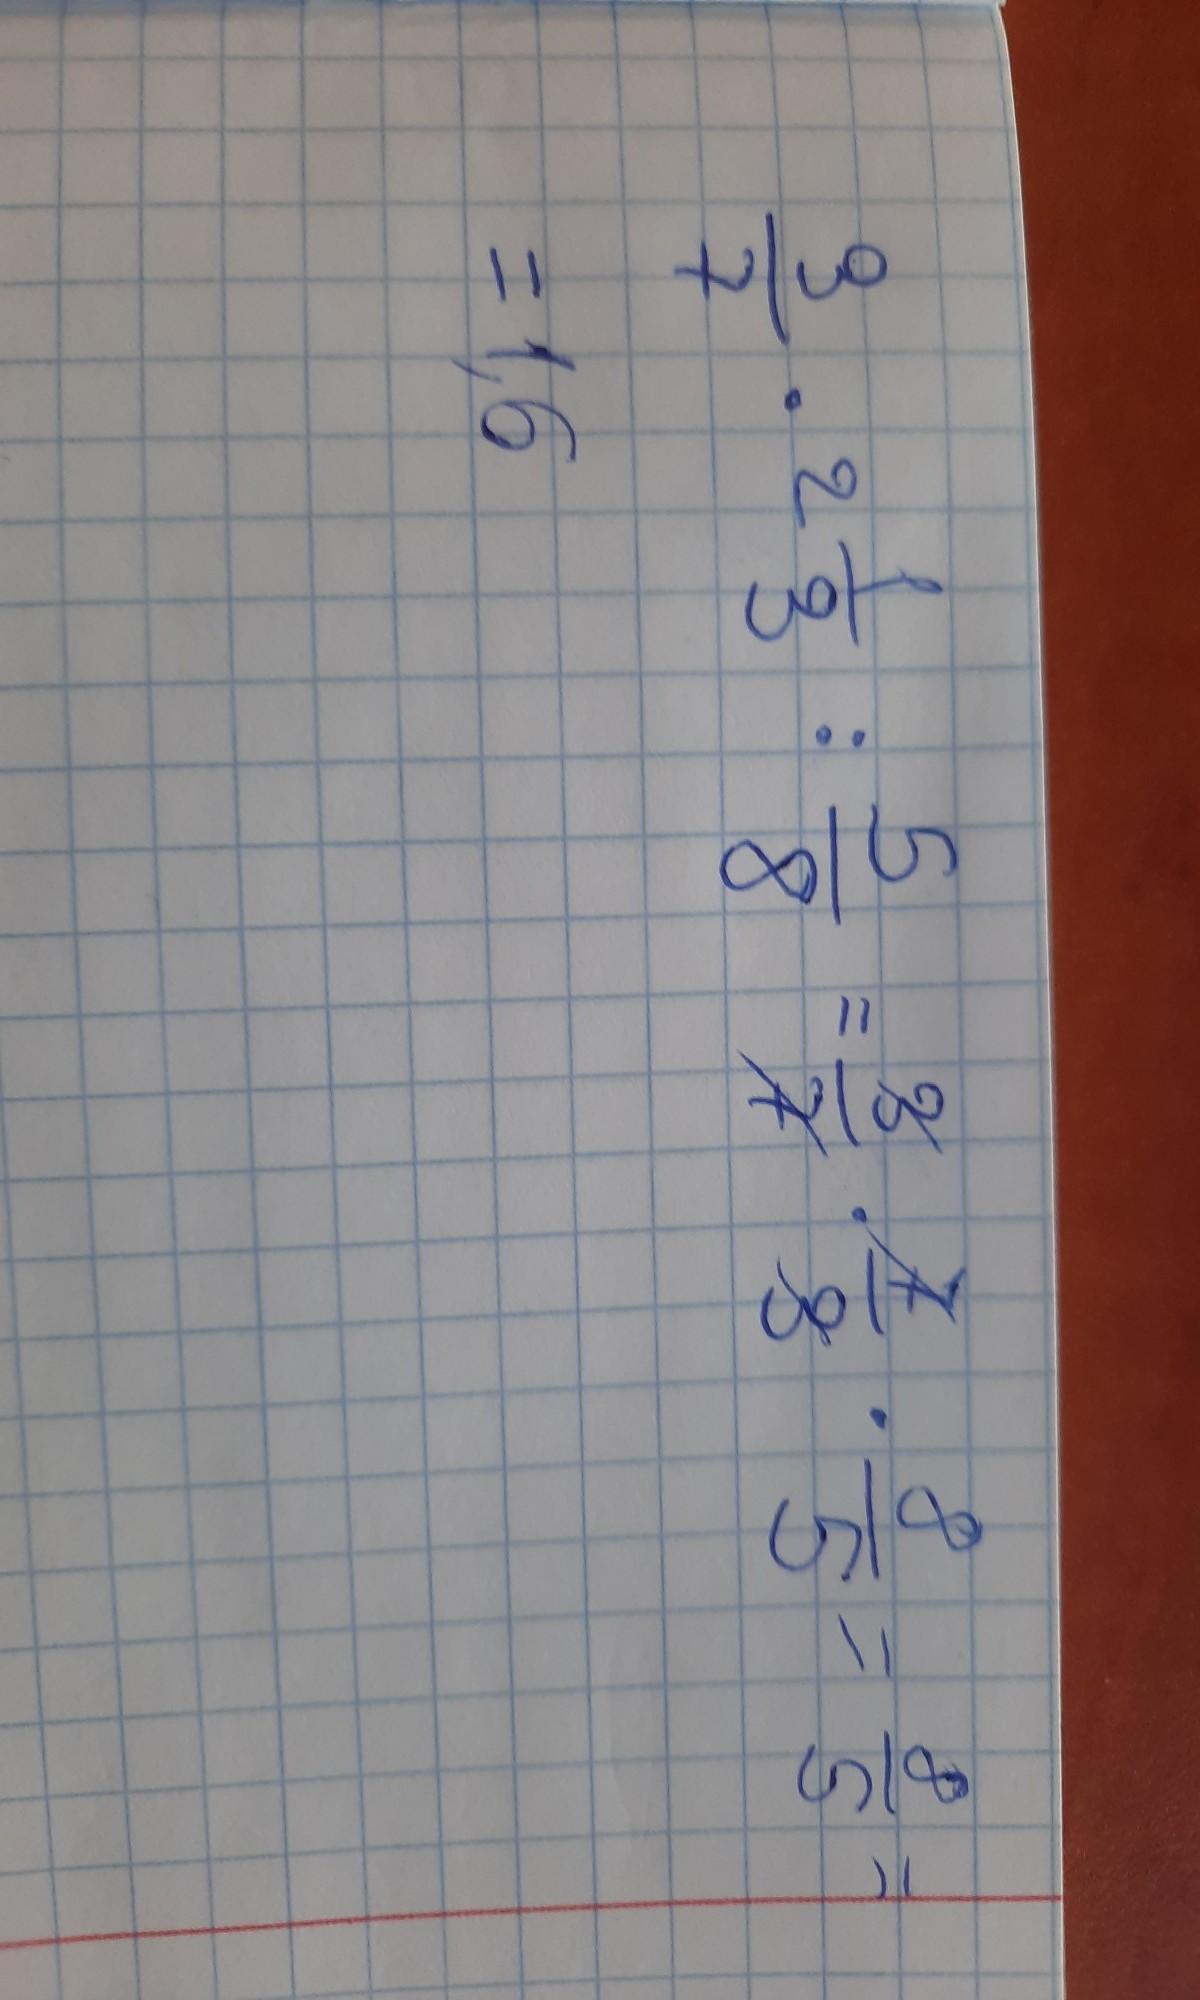 3/7 · 2 1/3 : 5/8 = 3/7 · 7/3 · 8/5 = 8/5 =
= 1,6